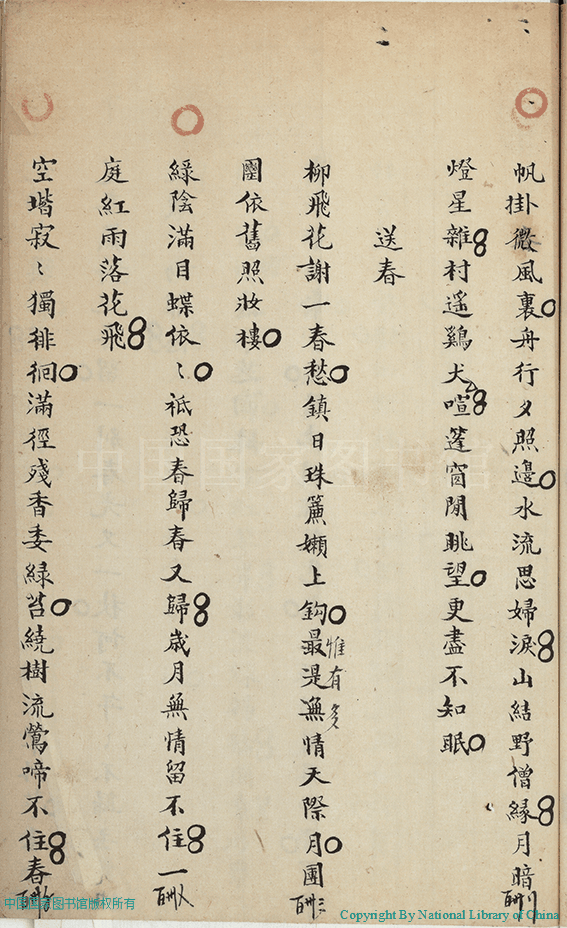 帆掛微風裏舟行夕照邊水流思婦淚山結野僧緣月暗
燈星雜村遥鷄犬喧篷窗閒眺望更盡不知眠
送春
柳飛花謝一春愁鎮日珠簾嬾上鈎最是無情天際月團
惟有多
團依舊照妝樓
綠陰滿目蝶依〻祗恐春歸春又歸歲月無情留不住一
庭紅雨落花飛
空堦寂〻獨徘徊滿徑殘香委緑苔繞樹流鶯啼不住春
中国国家图书馆
中国国家图书馆版权所有
Copyright By National Library of China